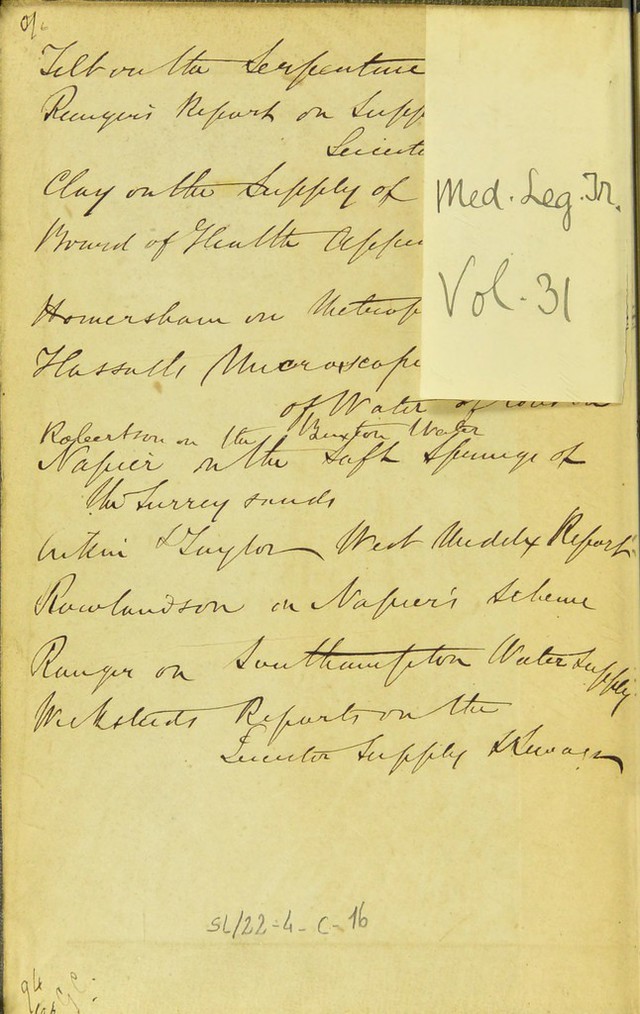 Tilt on the Serpentine
Rangers Report on Supp
Leiceste
Clay on the Supply of
Board of Health Appen
Med. Leg. Tr.
Vol. 31
Homersham on Metrop
Hassalls Microscopi
of Water of
Robertson on the Buxton Water
Napier on the Soft Springs of
the Surrey sands
& Taylor West Middx Report
Rowlandson on Napier's Scheme
Ranger on Southampton Water Supply
Wicksteeds Reports on the
Leicester Supply & Sewage
SL/22-4-C-16